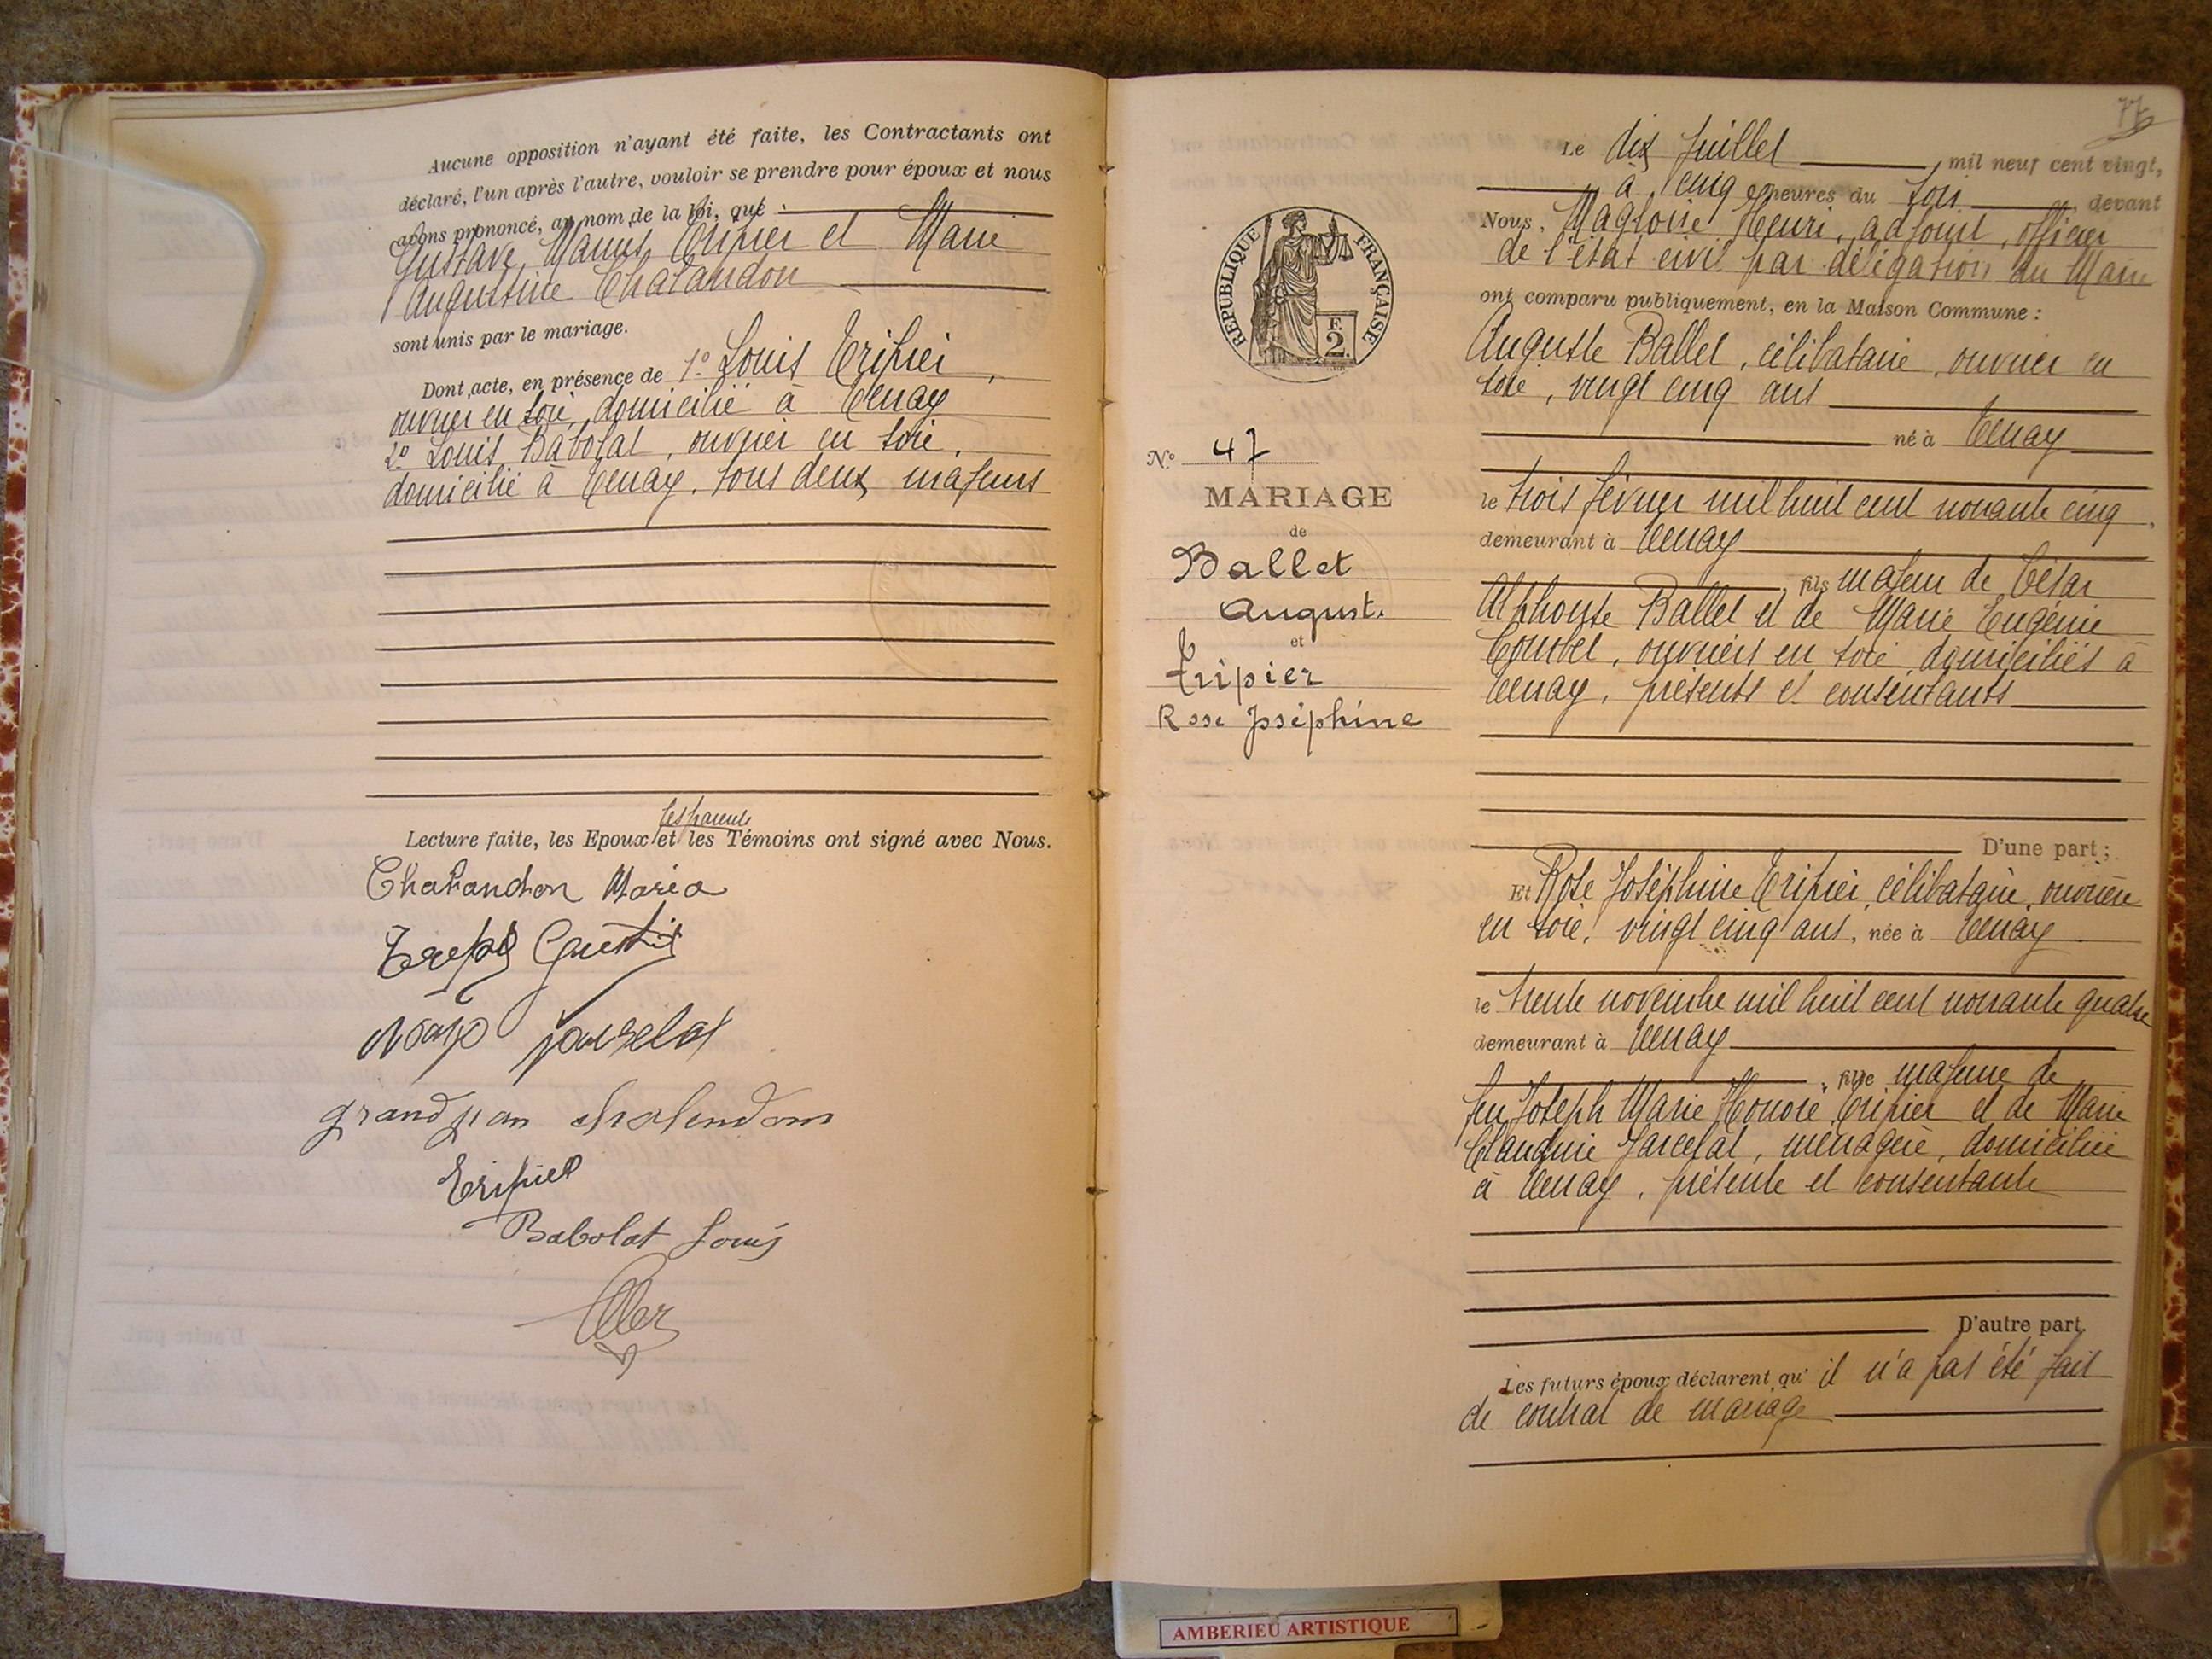 Aucune opposition n'ayant été faite, les Contractants ont
déclaré, l'un après l'autre, vouloir se prendre pour époux et nous
avons prononcé, au nom de la loi, que :
Gustave Marius Tripier et Marie
Augustine Chalandon
sont unis par le mariage.
Dont acte, en présence de 1° Louis Tripier,
ouvrier en soie, domicilié à Tenay
2° Louis Babolat, ouvrier en soie,
domicilié à Tenay, tous deux majeurs
les parents
Lecture faite, les Epoux et les Témoins ont signé avec Nous.
Chalandon Maria
grandjean
Tripier
Babolat Louis
77
Le dix Juillet mil neuf cent vingt,
à cinq heures du soir devant
Nous, Magloire Henri, adjoint, officier
de l'état civil par délégation du Maire
ont comparu publiquement, en la Maison Commune :
Auguste Ballet, célibataire, ouvrier en
soie, vingt cinq ans
né à Tenay
le trois février mil huit cent nonante cinq,
demeurant à Tenay
, fils majeur de César
Alphonse Ballet et de Marie Eugénie
ouvriers en soie domiciliés à
Tenay, présents et consentants
D'une part ;
Et Rose Joséphine Tripier, célibataire, ouvrière
en soie, vingt cinq ans, née à Tenay
le trente novembre mil huit cent nonante quatre
demeurant à Tenay
, fille majeure de
feu Joseph Marie Honoré Tripier et de Marie
Claudine Jarcelat, ménagère, domiciliée
à Tenay, présente et consentante
D'autre part.
Les futurs époux déclarent qu'il n'a pas été fait
de contrat de mariage
REPUBLIQUE FRANÇAISE
F.
2.
N° 47
MARIAGE
de
Ballet
August.
et
Tripier
Rose Joséphine
AMBERIEU ARTISTIQUE